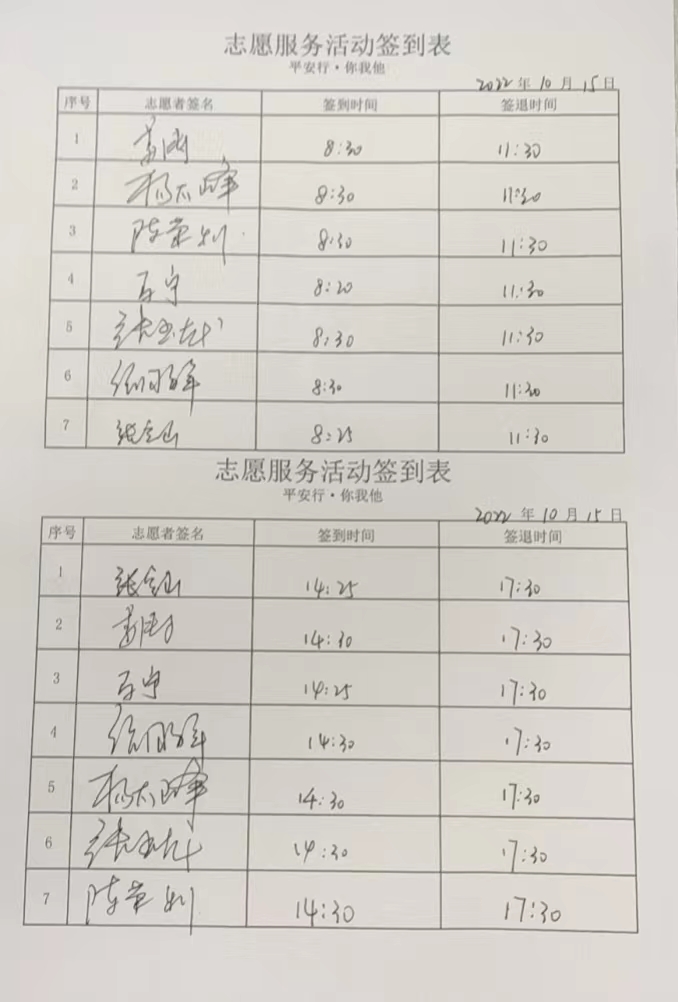 志愿服务活动签到表
平安行·你我他
2022年10月15日
序号 志愿者签名 签到时间 签退时间
1 8:30 11:30
2 8:30 11:30
3 陈荣利 8:30 11:30
4 8:20 11:30
5 8:30 11:30
6 8:30 11:30
7 8:25 11:30
志愿服务活动签到表
平安行·你我他
2022年10月15日
序号 志愿者签名 签到时间 签退时间
1 14:25 17:30
2 14:30 17:30
3 14:25 17:30
4 14:30 17:30
5 14:30 17:30
6 14:30 17:30
7 陈荣利 14:30 17:30